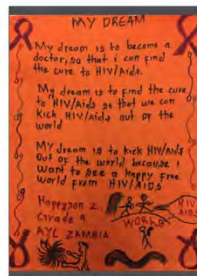 MY DREAM
My dream is to become a
doctor, so that i can find
the cure to HIV/Aids.
My dream is to find the cure
to HIV/Aids so that we can
Kick HIV/Aids out of the
world
My dream is to kick HIV/Aids
Out of the world because i
want to see a Happy free
world from HIV/AIDS
Hopeson Z.
Grade 9
AYL ZAMBIA
WORLD
HIV
AIDS